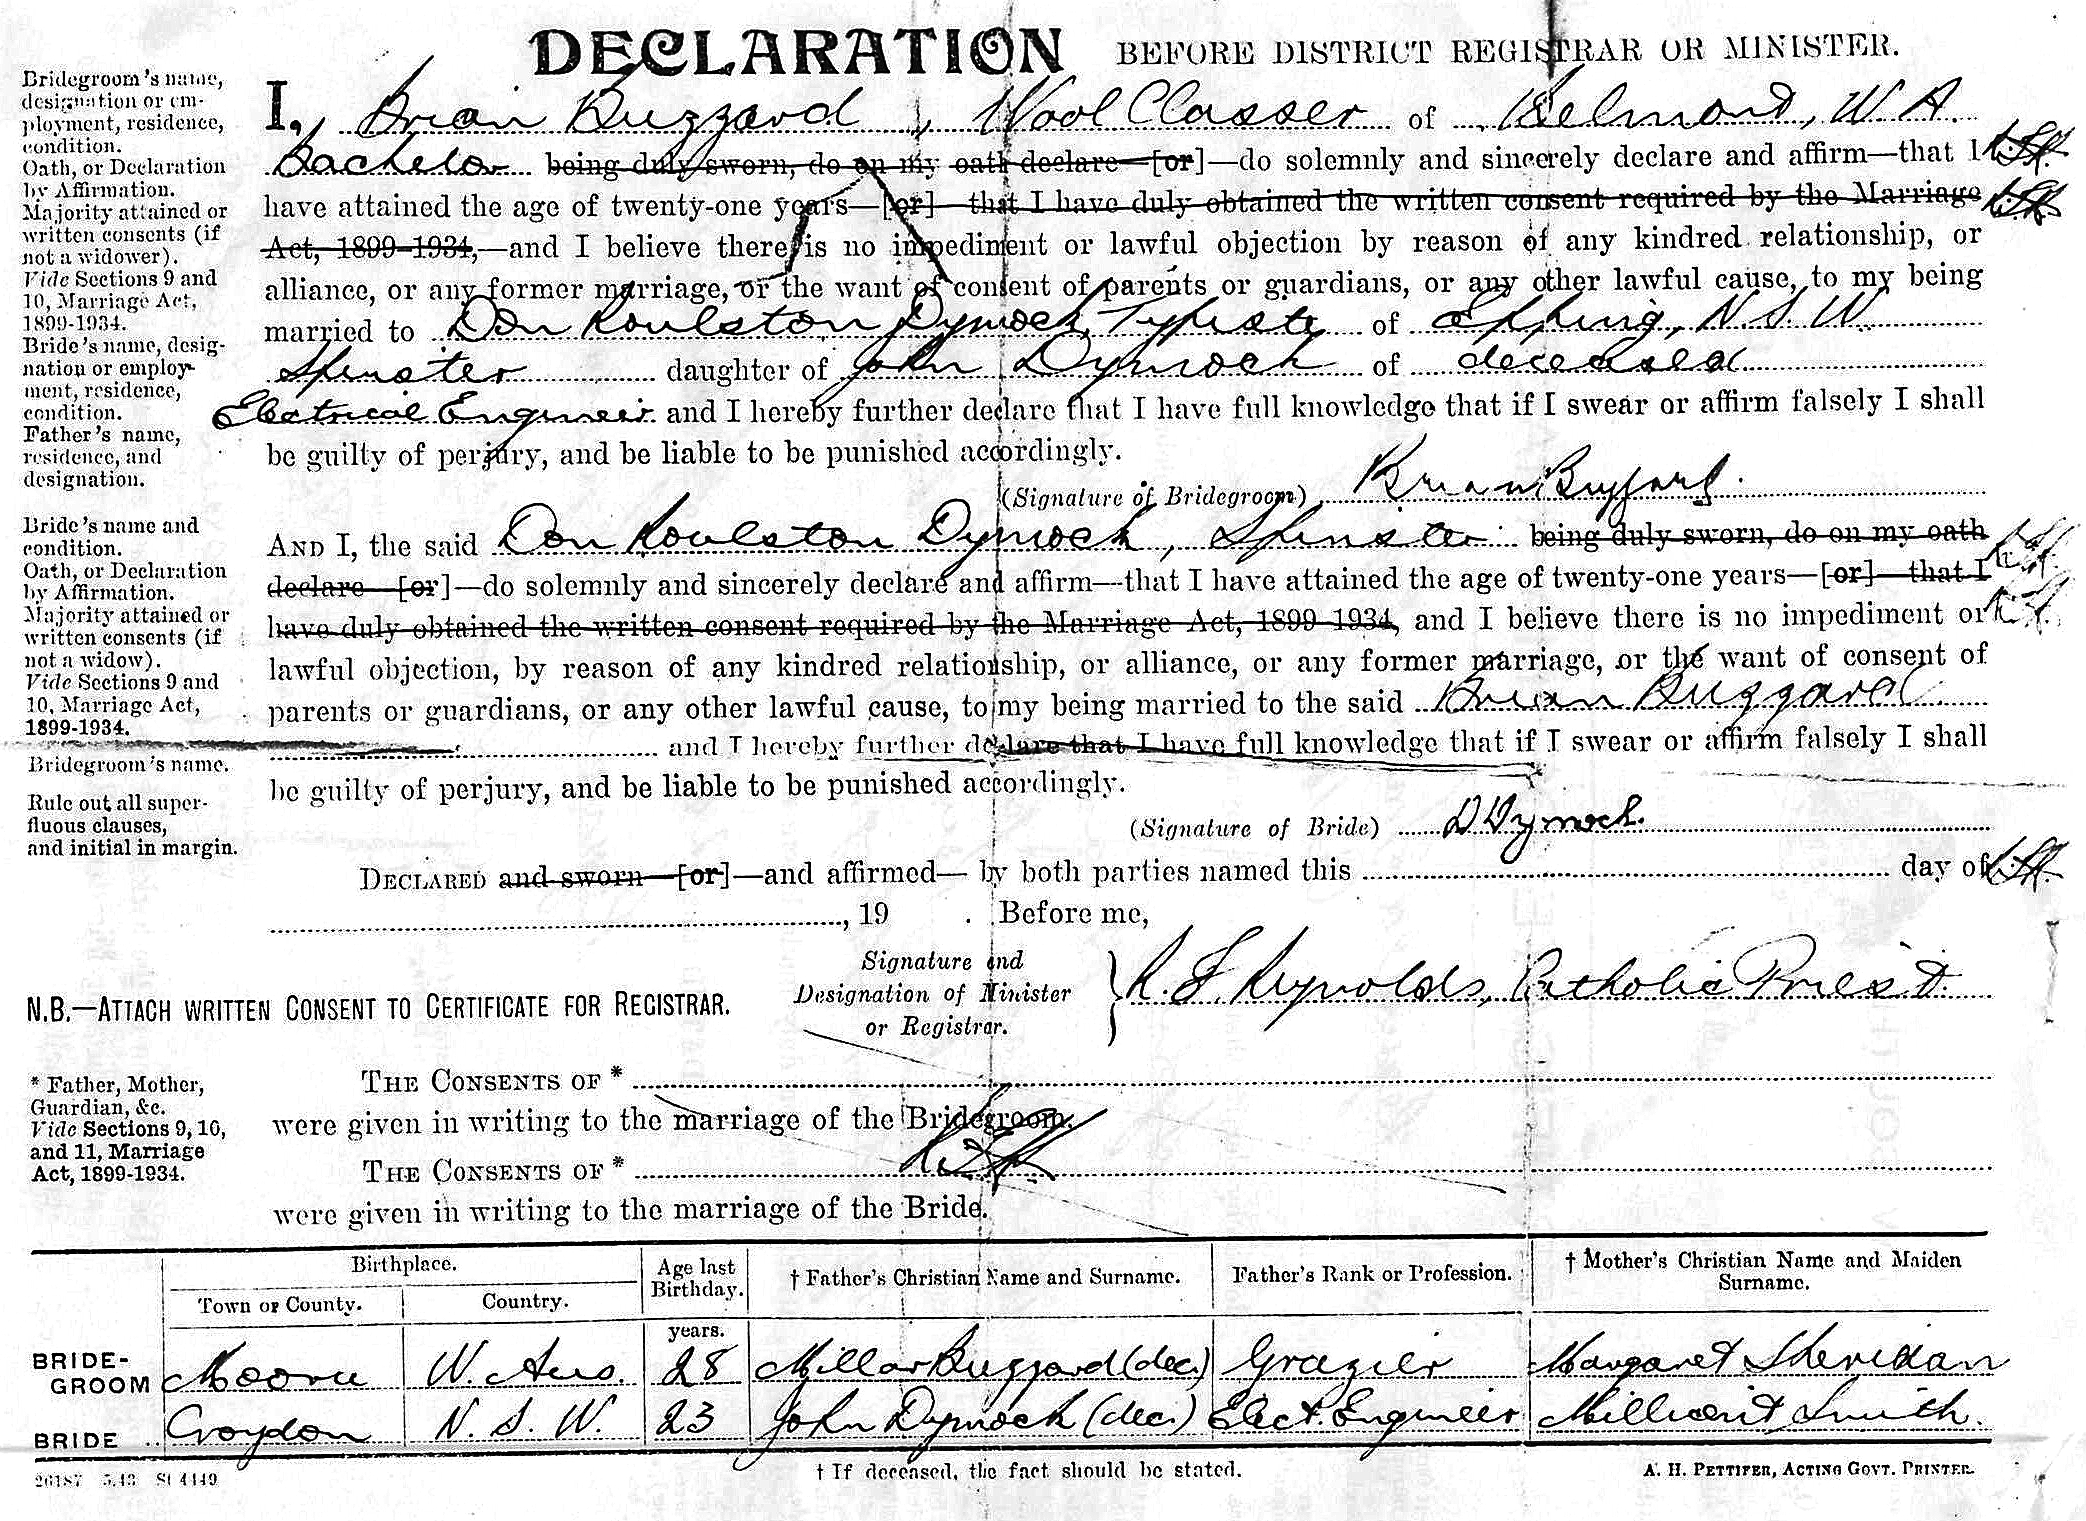 DECLARATION BEFORE DISTRICT REGISTRAR OR MINISTER.
Bridegroom's name,
designation or em-
ployment, residence,
condition.
Oath, or Declaration
by Affirmation.
Majority attained or
written consents (if
not a widower).
Vide Sections 9 and
10, Marriage Act,
1899-1934.
Bride's name, desig-
nation or employ-
ment, residence,
condition.
Father's name,
residence, and
designation.
I, Brian Buzzard, Wool Classer of Belmont, W.A.
Bachelor being duly sworn, do on my oath declare—[or]—do solemnly and sincerely declare and affirm—that I
have attained the age of twenty-one years—[or]—that I have duly obtained the written consent required by the Marriage
Act, 1899-1934,—and I believe there is no impediment or lawful objection by reason of any kindred relationship, or
alliance, or any former marriage, or the want of consent of parents or guardians, or any other lawful cause, to my being
married to Don Roulston Dymock, Typiste of Epping, N.S.W.
Spinster daughter of John Dymock of deceased
Electrical Engineer and I hereby further declare that I have full knowledge that if I swear or affirm falsely I shall
be guilty of perjury, and be liable to be punished accordingly.
(Signature of Bridegroom) Brian Buzzard.
Bride's name and
condition.
Oath, or Declaration
by Affirmation.
Majority attained or
written consents (if
not a widow).
Vide Sections 9 and
10, Marriage Act,
1899-1934.
Bridegroom's name.
Rule out all super-
fluous clauses,
and initial in margin.
AND I, the said Don Roulston Dymock, Spinster being duly sworn, do on my oath
declare—[or]—do solemnly and sincerely declare and affirm—that I have attained the age of twenty-one years—[or]—that I
have duly obtained the written consent required by the Marriage Act, 1899-1934, and I believe there is no impediment or
lawful objection, by reason of any kindred relationship, or alliance, or any former marriage, or the want of consent of
parents or guardians, or any other lawful cause, to my being married to the said Brian Buzzard
and I hereby further declare that I have full knowledge that if I swear or affirm falsely I shall
be guilty of perjury, and be liable to be punished accordingly.
(Signature of Bride) D Dymock.
DECLARED and sworn—[or]—and affirmed—by both parties named this day of
, 19 . Before me,
Signature and
Designation of Minister
or Registrar.
R. F. Reynolds, Catholic Priest.
N.B.—ATTACH WRITTEN CONSENT TO CERTIFICATE FOR REGISTRAR.
* Father, Mother,
Guardian, &c.
Vide Sections 9, 10,
and 11, Marriage
Act, 1899-1934.
THE CONSENTS OF *
were given in writing to the marriage of the Bridegroom.
THE CONSENTS OF *
were given in writing to the marriage of the Bride.
Birthplace. Age last Birthday. † Father's Christian Name and Surname. Father's Rank or Profession. † Mother's Christian Name and Maiden Surname.
Town or County. Country.
years.
BRIDE-GROOM Moora W. Aus. 28 Millar Buzzard (dec) Grazier Margaret Sheridan
BRIDE Croydon N. S. W. 23 John Dymock (dec.) Elect. Engineer Millicent Smith.
26187 5.43 St 4449
† If deceased, the fact should be stated.
A. H. PETTIFER, ACTING GOVT. PRINTER.